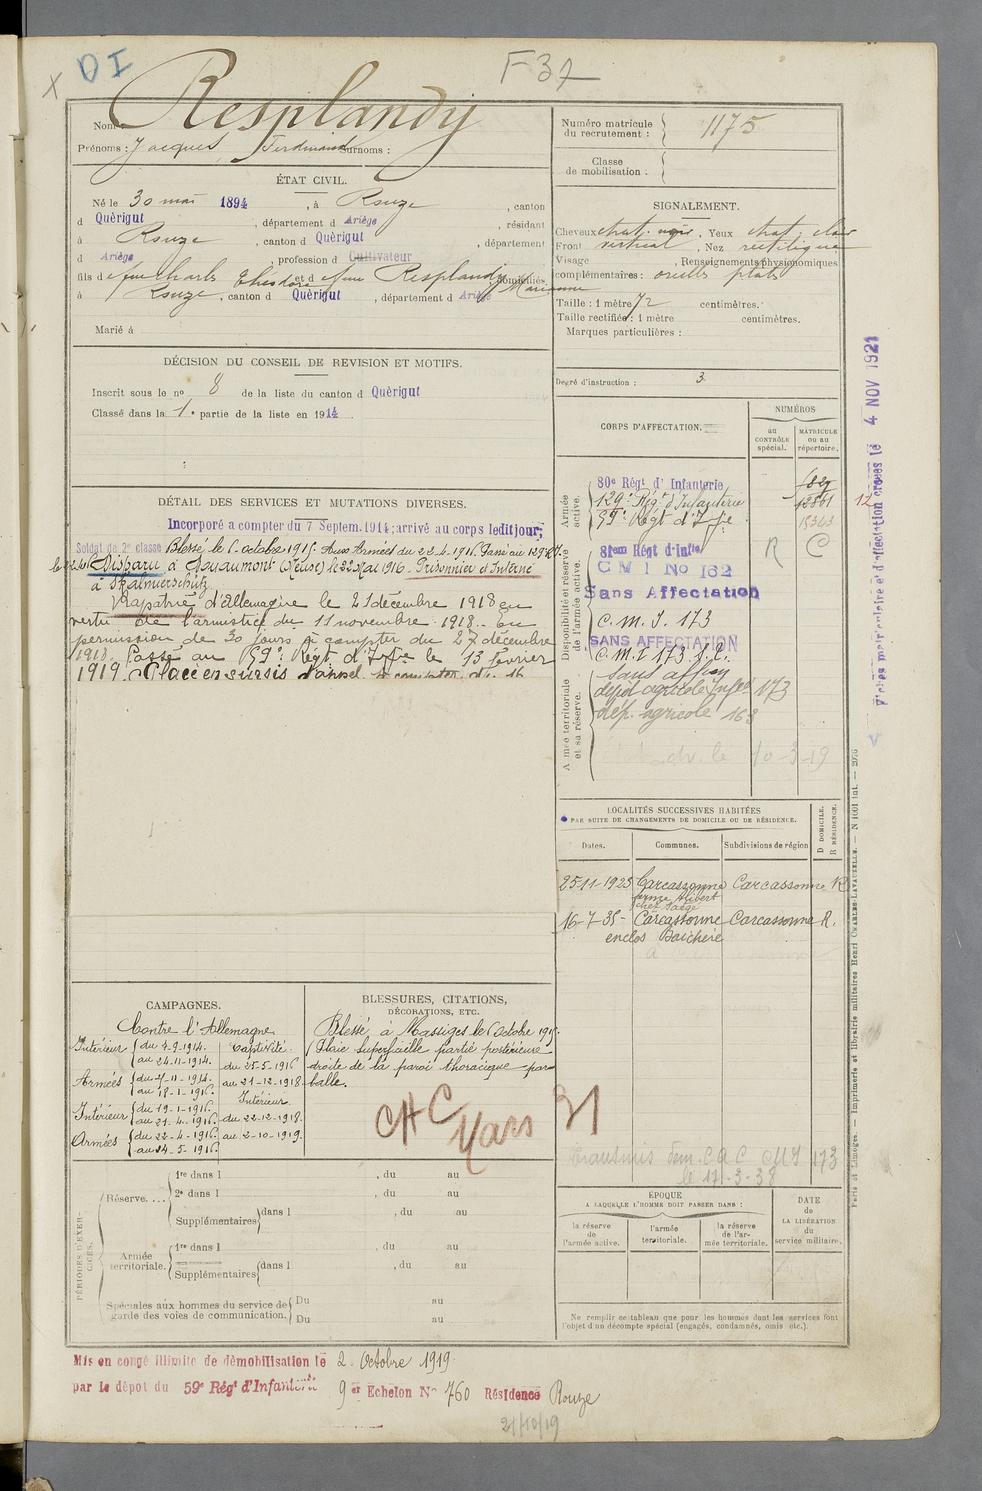 DI
X
F 37
Nom : Resplandy
Prénoms : Jacques, Ferdinand Surnoms :
ÉTAT CIVIL.
Né le 30 mai 1894, à Rouze, canton
d Quérigut, département d Ariège, résidant
à Rouze, canton d Quérigut, département
d Ariège, profession d Cultivateur
fils d feu Charles Théodore et d feue Resplandy Marianne, domiciliés
à Rouze, canton d Quérigut, département d Ariège
Marié à
DÉCISION DU CONSEIL DE REVISION ET MOTIFS.
Inscrit sous le nº 8 de la liste du canton d Quérigut
Classé dans la 1e partie de la liste en 1914
DÉTAIL DES SERVICES ET MUTATIONS DIVERSES.
Incorporé a compter du 7 Septem. 1914; arrivé au corps ledit jour;
Soldat de 2e classe Blessé le 6 octobre 1915. Aux Armées du 22-4-1916 Passé au 129e R.I.
Disparu à Douaumont (Meuse) le 22 Mai 1916 - Prisonnier et Interné
à Skalmierschütz
Rapatrié d'Allemagne le 21 décembre 1918 en
vertu de l'armistice du 11 novembre 1918. En
permission de 30 jours à compter du 27 décembre
1918. Passé au 59e Régt d'Inf.ie le 13 février
1919. Placé en sursis d'appel à compter du 16
CAMPAGNES.
Contre l'Allemagne
Intérieur du 7-9-1914.
au 24-11-1914.
Armées
au 18-1-1916.
Intérieur du 19-1-1916.
au 21-4-1916.
Armées du 22-4-1916.
au 24-5-1916
Captivité.
du 25-5-1916
au 21-12-1918
Intérieur
du 22-12-1918.
au 2-10-1919.
BLESSURES, CITATIONS,
DÉCORATIONS, ETC.
Blessé à Massiges le 6 Octobre 1915.
Plaie superficielle partie postérieure
droite de la paroi thoracique par
balle.
CAC Mars 31
PÉRIODES D'EXERCICES.
Réserve....
1re dans l , du au
2e dans l , du au
Supplémentaires dans l , du au
Armée territoriale.
1re dans l , du au
Supplémentaires dans l , du au
Spéciales aux hommes du service de
garde des voies de communication.
Du au
Du au
Mis en congé illimité de démobilisation le 2 Octobre 1919.
par le dépôt du 59e Régt d'Infanterie 9er Echelon No 760 Résidence Rouze
21/10/19
Numéro matricule
du recrutement : 1175
Classe
de mobilisation :
SIGNALEMENT.
Cheveux chat. noir, Yeux chat. clair
Front vertical, Nez rectiligne
Visage , Renseignements physionomiques
complémentaires : oreilles plates
Taille : 1 mètre 72 centimètres.
Taille rectifiée : 1 mètre centimètres.
Marques particulières :
Degré d'instruction : 3
CORPS D'AFFECTATION.
NUMÉROS
au
CONTRÔLE
spécial.
MATRICULE
ou au
répertoire.
Armée
active.
80e Régt d'Infanterie
129e Régt d'Infanterie 12861
59e Régt d'Inf.ie 15343
12
Disponibilité et réserve
de l'armée active.
81em Régt d'Infie R C
C M I No 162
Sans Affectation
C. M. I. 173
SANS AFFECTATION
C. M. I 173 S.C.
Armée territoriale
et sa réserve.
Sans affon
dépôt agricole Infrie 173
dép. agricole 163
10-3-19
LOCALITÉS SUCCESSIVES HABITÉES
PAR SUITE DE CHANGEMENTS DE DOMICILE OU DE RÉSIDENCE.
Dates.
Communes.
Subdivisions de région
D DOMICILE.
R RÉSIDENCE.
25-11-1925 Carcassonne Carcassonne R
16-7-35- Carcassonne Carcassonne R.
enclos
Transmis dem. C A C CMI 173
le 17-3-38
ÉPOQUE
A LAQUELLE L'HOMME DOIT PASSER DANS :
la réserve
de
l'armée active.
l'armée
territoriale.
la réserve
de l'ar-
mée territoriale.
DATE
de
LA LIBÉRATION
du
service militaire.
Ne remplir ce tableau que pour les hommes dont les services font
l'objet d'un décompte spécial (engagés, condamnés, omis etc.).
Fiches matriculaire et d'affectation crées le 4 NOV 1921
Paris et Limoges. — Imprimerie et librairie militaires Henri CHARLES-LAVAUZELLE. — N 1001 int. —